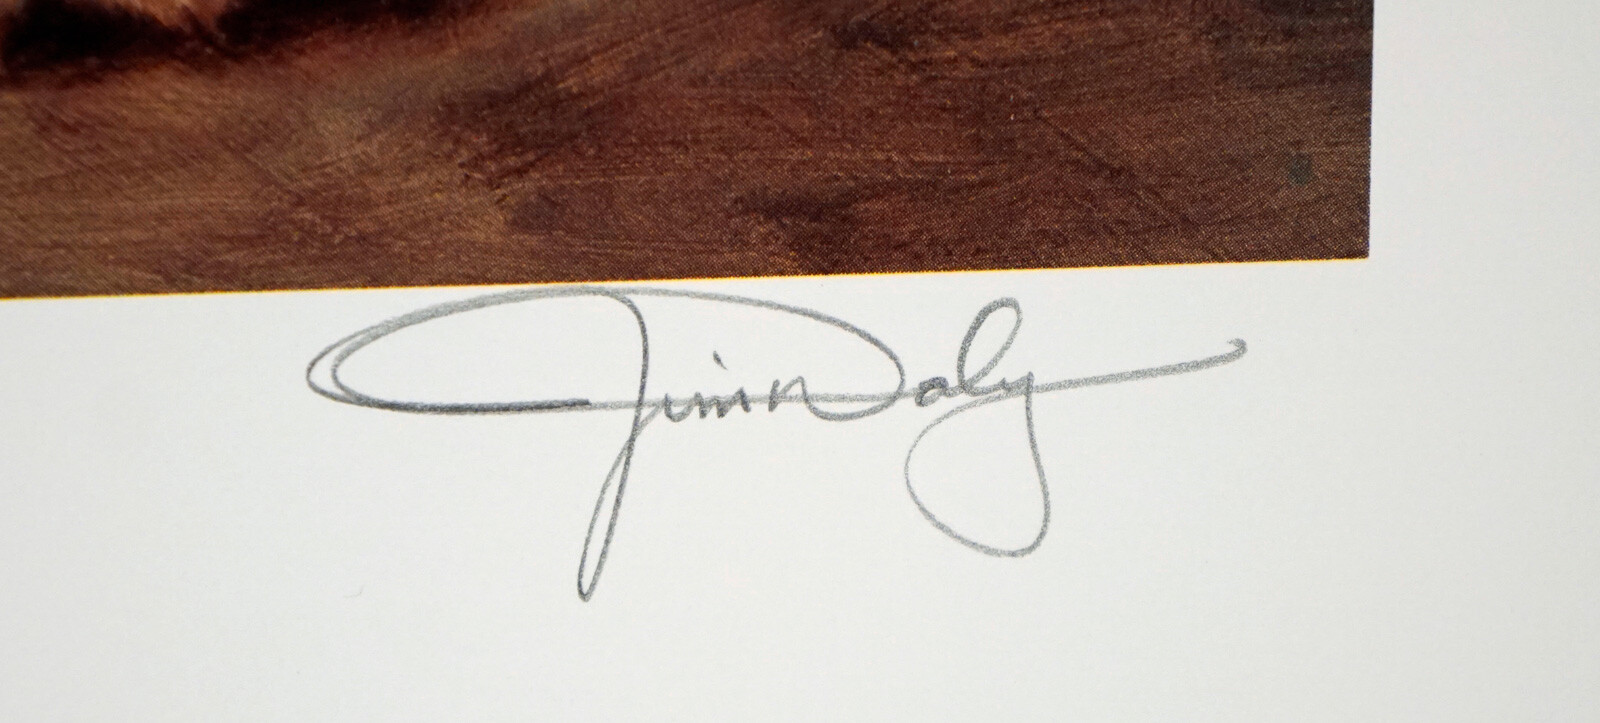 Jim Daly